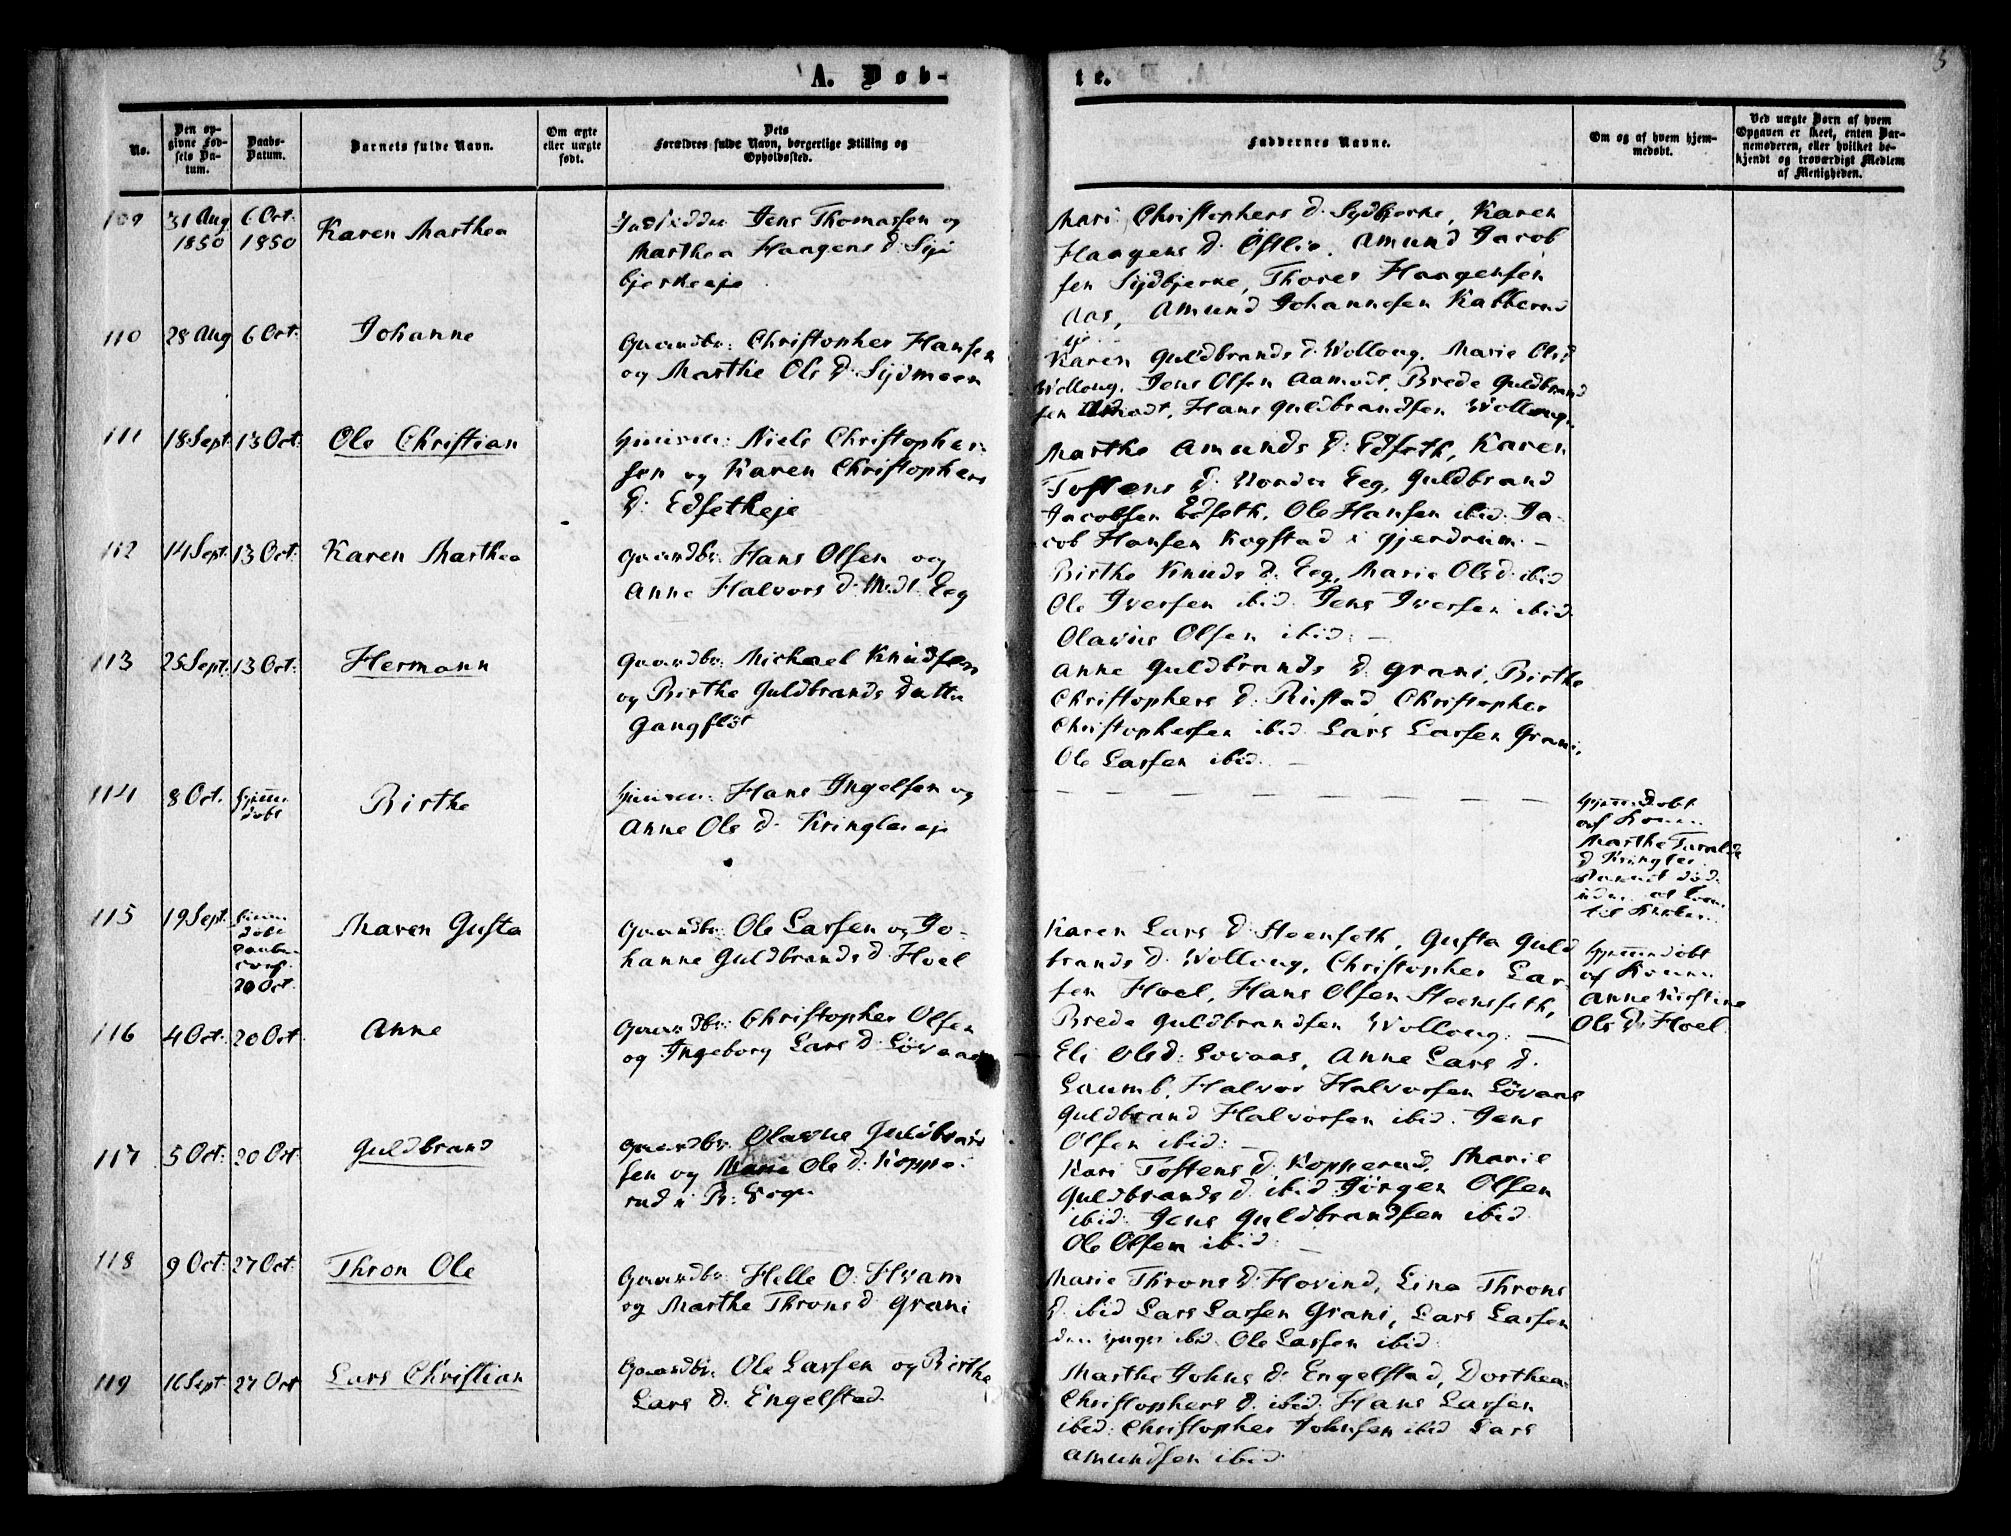 A. Døb-
te.
5
No.
Den opgivne Fødsels Datum.
Daabs-Datum.
Barnets fulde Navn.
Om ægte eller uægte født.
Dets Forældres fulde Navn, borgerlige Stilling og Opholdssted.
Faddernes Navne.
Om og af hvem hjemmedøbt.
Ved uægte Børn af hvem Opgaven er skeet, enten Barnemoderen, eller hvilket bekjendt og troværdigt Medlem af Menigheden.
109
31 Aug
1850
6 Oct:
1850
Karen Marthea
Jens Thomassen og
Marthea Haagens d: Syd
bjerkeeje
Mari Christophers d: Sydbjerke, Karen
Haagens d: Östlie, Amund Jacob
sen Sydbjerke, Thorer Haagensen
Aas, Amund Johannesen Kabberud
eje
110
28 Aug
6 Oct:
Johanne
Gaardbr: Christopher Hansen
og Marthe Ols d: Sydmoen
Karen Guldbrands d: Wolloug, Marie Ols d
Wolloug, Jens Olsen Aamodt, Brede Guldbrand
sen Aamodt, Hans Guldbrandsen Wolloug.
111
18 Sept:
13 Oct:
Ole Christian
Huusm: Niels Christopher
sen og Karen Christophers
d: Edsetheje
Marthe Amunds d: Edseth, Karen
Tostens d: Nordre Eeg, Guldbrand
Jacobsen Edseth, Ole Hansen ibid: Ja-
cob Hansen Kogstad i Gjerdrum. –
112
14 Sept:
13 Oct:
Karen Marthea
Gaardbr: Hans Olsen og
Anne Halvors d: Mdl: Eeg
Birthe Knuds d: Eeg, Marie Ols d: ibid
Ole Iversen ibid: Jens Iversen ibid:
Olavus Olsen ibid: –
113
25 Sept:
13 Oct:
Hermann
Gaardbr: Michael Knudsen
og Birthe Guldbrands datter
Gangflöt
Anne Guldbrands d: Grani, Birthe
Christophers d: Rustad, Christopher
Christophersen ibid: Lars Larsen Grani,
Ole Larsen ibid. –
114
8 Oct.
Hjem
døbt
Birthe
Huusm: Hans Ingelsen og
Anne Ols d: Kringlereje
– – – – – – – –
Hjemmedøbt
af Konen
Marthe
d: Kringler.
Barnet død
til Kirken.
115
19 Sept:
Hjem
døbt
20 Oct.
Maren Gusta
Gaardbr: Ole Larsen og Jo-
hanne Guldbrands d: Hoel
Karen Lars d: Steenseth, Gusta Guld
brands d: Wolloug, Christopher Lar-
sen Hoel, Hans Olsen Steenseth,
Brede Guldbrandsen Wolloug. –
Hjemmedøbt
af Konen
Anne Kirstine
Ols d: Hoel
116
4 Oct:
20 Oct
Anne
Gaardbr: Christopher Olsen
og Ingeborg Lars d: Lövaas
Eli Ols d: Lovaas, Anne Lars d:
Laumb, Halvor Halvorsen Lövaas
Guldbrand Halvorsen ibid: Jens
Olsen ibid: –
117
5 Oct:
20 Oct
Guldbrand
Gaardbr: Olavne Guldbrand
sen og Marie Ols d: Koppe-
rud i
Kari Tostens d: Kopperud, Marie
Guldbrands d: ibid: Jörgen Olsen
ibid: Jens Guldbrandsen ibid
Ole Olsen ibid: –
118
9 Oct:
27 Oct:
Thron Ole
Gaardbr: Helle O: Hvam
og Marthe Throns d: Grani
Marie Throns d: Hovind, Lina Throns
d: ibid Lars Larsen Grani, Lars Larsen
den yngre ibid: Ole Larsen ibid:
119
16 Sept
27 Oct
Lars Christian
Gaardbr: Ole Larsen og Birthe
Lars d: Engelstad
Marthe Johns d: Engelstad, Dorthea
Christophers d: ibid: Hans Larsen
ibid: Christopher Johnsen ibid Lars
Amundsen ibid: